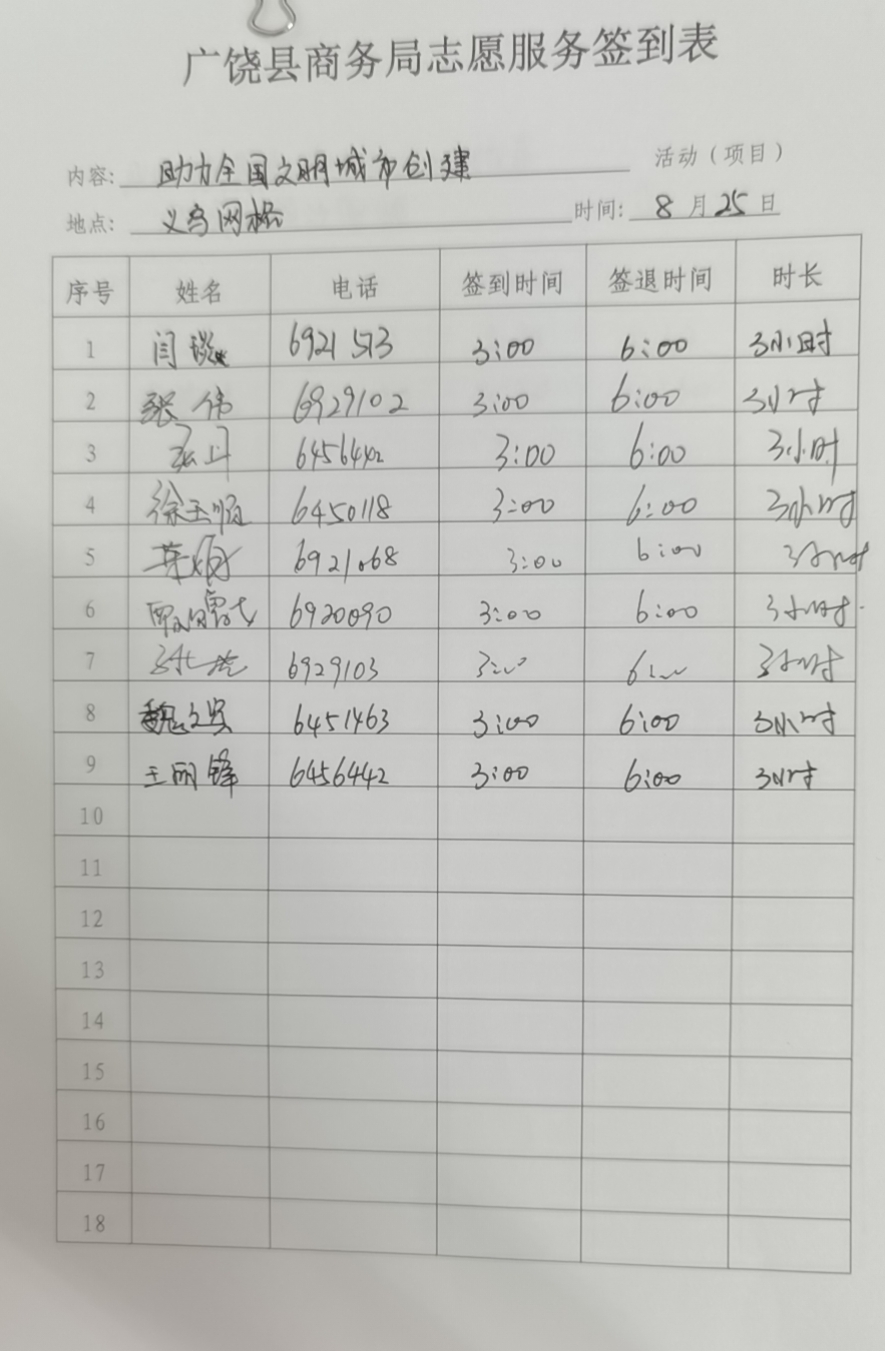 广饶县商务局志愿服务签到表
内容: 助力全国文明城市创建 活动（项目）
地点: 义乌网格 时间: 8 月 25 日
序号 姓名 电话 签到时间 签退时间 时长
1 闫 6921513 3:00 6:00 3小时
2 张伟 6929102 3:00 6:00 3小时
3 3:00 6:00 3小时
4 徐玉顺 6450118 3:00 6:00 3小时
5 6921068 3:00 6:00 3小时
6 6920090 3:00 6:00 3小时
7 6929103 3:00 6:00 3小时
8 魏文 6451463 3:00 6:00 3小时
9 王丽锋 6456442 3:00 6:00 3小时
10
11
12
13
14
15
16
17
18